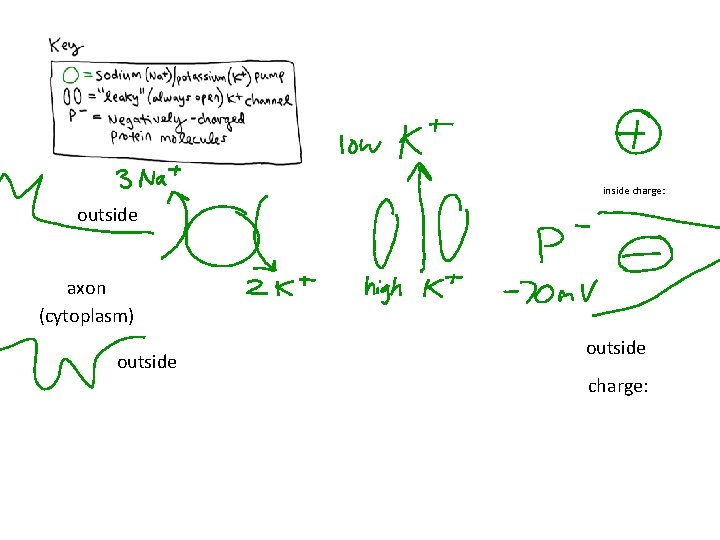 Key
O = sodium (Na+)/potassium (K+) pump
00 = "leaky" (always open) K+ channel
P- = Negatively-charged
protein molecules
low K+
+
3 Na+
inside charge:
outside
P-
−
axon
2 K+
high K+
-70mV
(cytoplasm)
outside
outside
charge: